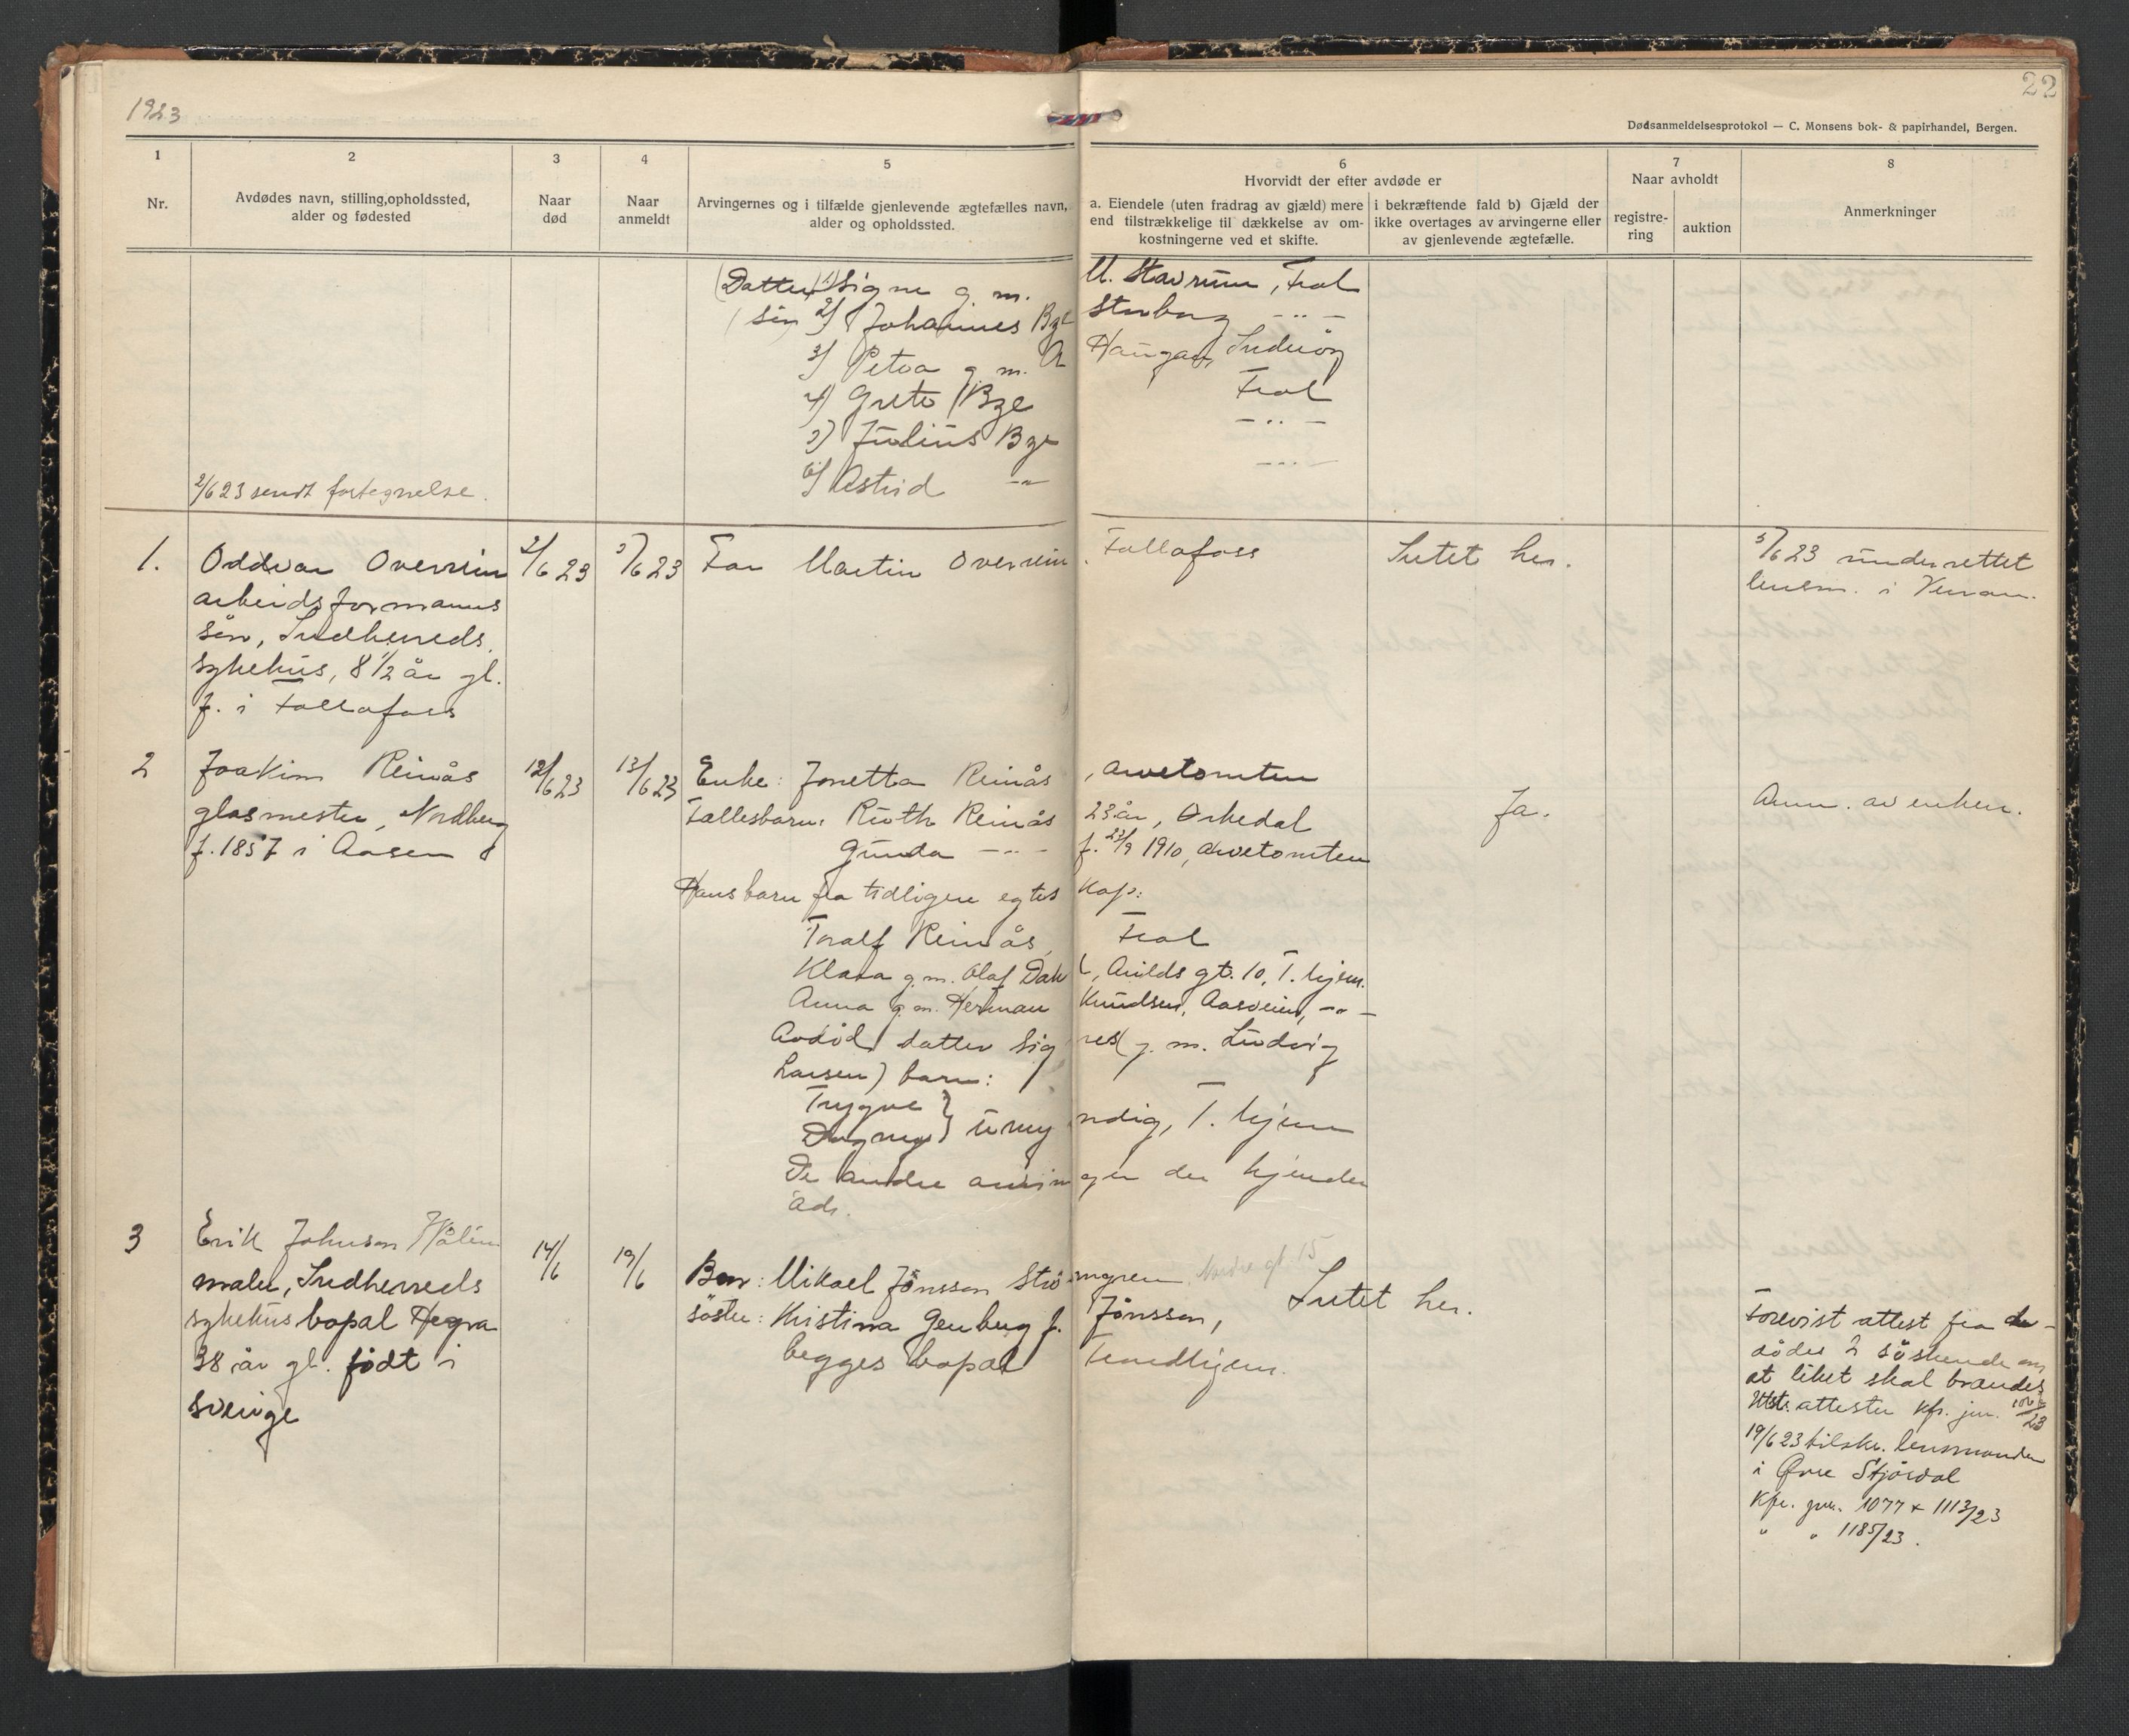 1923
22
Dødsanmeldelsesprotokol — C. Monsens bok- & papirhandel, Bergen.
1
Nr.
2
Avdødes navn, stilling, opholdssted,
alder og fødested
3
Naar
død
4
Naar
anmeldt
5
Arvingernes og i tilfælde gjenlevende ægtefælles navn,
alder og opholdssted.
6
Hvorvidt der efter avdøde er
a. Eiendele (uten fradrag av gjæld) mere
end tilstrækkelige til dækkelse av om-
kostningerne ved et skifte.
i bekræftende fald b) Gjæld der
ikke overtages av arvingerne eller
av gjenlevende ægtefælle.
7
Naar avholdt
registre-
ring
auktion
8
Anmerkninger
(Datter) 1) Signe g. m. M. Stavrum, Frol
(sön 2) Johannes Bye Stenborg -"-
3) Petra g. m. A Haugan, Inderöy
4) Grete Bye Frol
5) Julius Bye -"-
6) Astrid -"- -"-
2/6 23 sendt fortegnelse.
1. Oddvar Overrein 2/6 23 5/6 23 Far Martin Overrein, Follafoss Intet her. 5/6 23 underrettet
arbeidsformanns lensm. i Verran.
sön, Indherreds
sykehus, 8 1/2 år gl.
f. i Follafoss
2 Joakim Reinås 12/6 23 13/6 23 Enke: Jonetta Reinås, Arvetomten
glasmester, Nordberg Fællesbarn: Ruth Reinås 23 år, Orkedal Ja. Anm. av enken.
f. 1857 i Aasen Gunda -"- f. 23/9 1910, Arvetomten
Hans barn fra tidligere egteskap:
Toralf Reinås, Frol
Klara g. m. Olaf Dahl, Arilds gt. 10, T. hjem.
Anna g. m. Herman Knudsen, Aasveien, -"-
Avdöd datter Sig g. m. Ludvig
Larsen) barn:
Trygve
Dagny } umyndig, T. hjem
De andre arvinger der kjender
adr.
3 Erik Johnson Hålin 14/6 19/6 Bror: Mikael Jönsson Strömgren Nordre gt 15 Intet her.
maler, Indherreds söster: Kristina Genberg f. Jönsson,
sykehus bopal Hegra begges bopæl Trondhjem.
38 år gl. födt i
Sverige
Forevist attest fra de
dödes 2 söskende om
at liket skal brændes
Utst. attester kfr. jnr.
19/6 23 tilskr. lensmanden
i Øvre Stjördal
Kfr. jnr. 1077 + 1113/23
" " 1185/23.